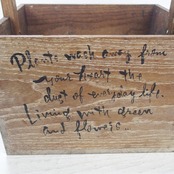 Plants wash away from
your heart the
dust of everyday life.
Living with green
and flowers...